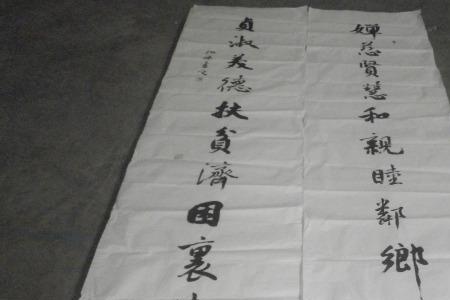 嬋慈賢慧和親睦鄰鄉
貞淑美德扶貧濟困裏